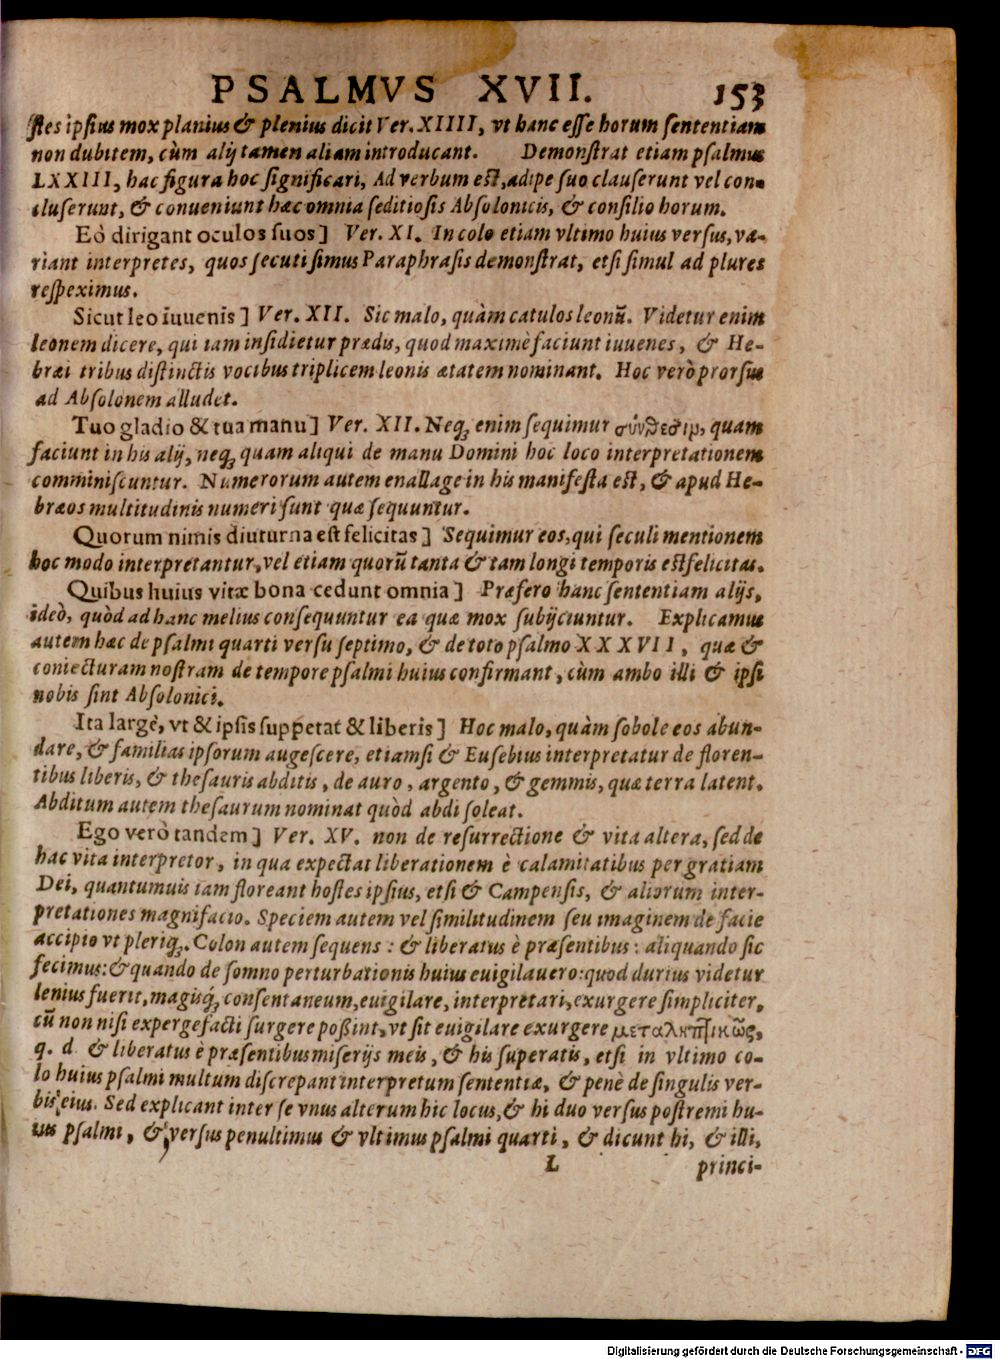 PSALMVS XVII. 153
ſtes ipſius mox planius & plenius dicit Ver. XIIII, vt hanc eſſe horum ſententiam
non dubitem, cùm alij tamen aliam introducant. Demonſtrat etiam pſalmus
LXXIII, hac figura hoc ſignificari, Ad verbum eſt, adipe ſuo clauſerunt vel con-
cluſerunt, & conueniunt hæc omnia ſeditioſis Abſolonicis, & conſilio horum.
Eò dirigant oculos ſuos] Ver. XI. In colo etiam vltimo huius verſus, va-
riant interpretes, quos ſecuti ſimus Paraphraſis demonſtrat, etſi ſimul ad plures
reſpeximus.
Sicut leo iuuenis] Ver. XII. Sic malo, quàm catulos leonū. Videtur enim
leonem dicere, qui iam inſidietur prædis, quod maximè faciunt iuuenes, & He-
bræi tribus diſtinctis vocibus triplicem leonis ætatem nominant. Hoc verò prorſus
ad Abſolonem alludet.
Tuo gladio & tua manu] Ver. XII. Neq; enim ſequimur σύνθεσιμ, quam
faciunt in his alij, neq; quam aliqui de manu Domini hoc loco interpretationem
comminiſcuntur. Numerorum autem enallage in his manifeſta eſt, & apud He-
bræos multitudinis numeri ſunt quæ ſequuntur.
Quorum nimis diuturna eſt felicitas] Sequimur eos, qui ſeculi mentionem
hoc modo interpretantur, vel etiam quorū tanta & tam longi temporis eſt felicitas.
Quibus huius vitæ bona cedunt omnia] Præfero hanc ſententiam alijs,
ideò, quòd ad hanc melius conſequuntur ea quæ mox ſubijciuntur. Explicamus
autem hæc de pſalmi quarti verſu ſeptimo, & de toto pſalmo XXXVII, quæ &
coniecturam noſtram de tempore pſalmi huius confirmant, cùm ambo illi & ipſi
nobis ſint Abſolonici.
Ita largè, vt & ipſis ſuppetat & liberis] Hoc malo, quàm ſobole eos abun-
dare, & familias ipſorum augeſcere, etiamſi & Euſebius interpretatur de floren-
tibus liberis, & theſauris abditis, de auro, argento, & gemmis, quæ terra latent.
Abditum autem theſaurum nominat quòd abdi ſoleat.
Ego verò tandem] Ver. XV. non de reſurrectione & vita altera, ſed de
hac vita interpretor, in qua expectat liberationem è calamitatibus per gratiam
Dei, quantumuis iam floreant hoſtes ipſius, etſi & Campenſis, & aliorum inter-
pretationes magnifacio. Speciem autem vel ſimilitudinem ſeu imaginem de facie
accipio vt pleriq;. Colon autem ſequens: & liberatus è præſentibus: aliquando ſic
fecimus: & quando de ſomno perturbationis huius euigilauero: quod durius videtur
lenius fuerit, magisq́; conſentaneum, euigilare, interpretari, exurgere ſimpliciter,
cū non niſi expergefacti ſurgere poßint, vt ſit euigilare exurgere μεταληπτικῶς,
q. d. & liberatus è præſentibus miſerijs meis, & his ſuperatis, etſi in vltimo co-
lo huius pſalmi multum diſcrepant interpretum ſententiæ, & penè de ſingulis ver-
bis eius. Sed explicant inter ſe vnus alterum hic locus, & hi duo verſus poſtremi hu-
ius pſalmi, & verſus penultimus & vltimus pſalmi quarti, & dicunt hi, & illi,
L princi-
Digitalisierung gefördert durch die Deutsche Forschungsgemeinschaft - DFG